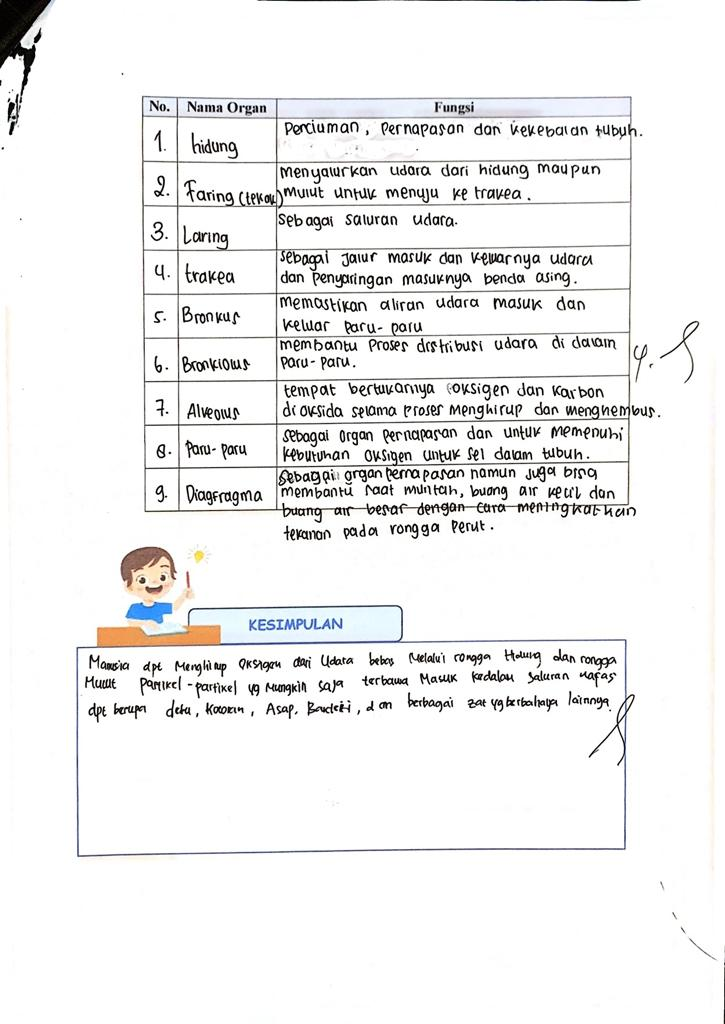 No. Nama Organ Fungsi
1. hidung Penciuman, Pernapasan dan kekebalan tubuh.
2. Faring (tekak) Menyalurkan udara dari hidung maupun
mulut untuk menuju ke trakea.
3. Laring Sebagai saluran udara.
4. trakea sebagai jalur masuk dan keluarnya udara
dan penyaringan masuknya benda asing.
5. Bronkus Memastikan aliran udara masuk dan
keluar paru-paru
6. Bronkiolus membantu proses distribusi udara di dalam
Paru-paru.
7. Alveolus tempat bertukarnya oksigen dan karbon
dioksida selama proses menghirup dan menghembus.
8. Paru-paru sebagai organ pernapasan dan untuk memenuhi
kebutuhan oksigen untuk sel dalam tubuh.
9. Diagfragma sebagai organ pernapasan namun juga bisa
membantu saat muntah, buang air kecil dan
buang air besar dengan cara meningkatkan
tekanan pada rongga perut.
4.
KESIMPULAN
Manusia dpt Menghirup Oksigen dari Udara bebas Melalui rongga Hidung dan rongga
Mulut partikel-partikel yg mungkin saja terbawa Masuk kedalam saluran nafas
dpt berupa debu, Kotoran, Asap, Bakteri, dan berbagai zat yg berbahaya lainnya.